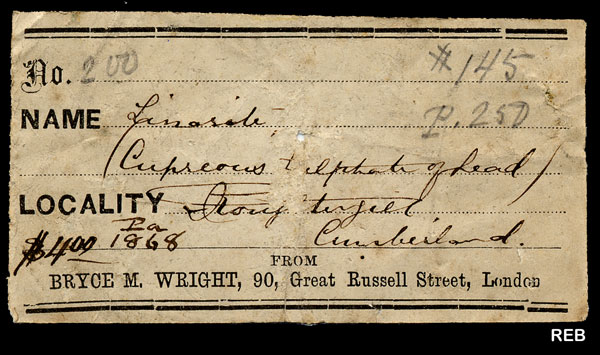 No. 200 # 145
NAME Linarite, P. 250
(Cupreous Sulphate of Lead)
LOCALITY
Pa
$4.00 1868 Cumberland.
FROM
BRYCE M. WRIGHT, 90, Great Russell Street, London
REB